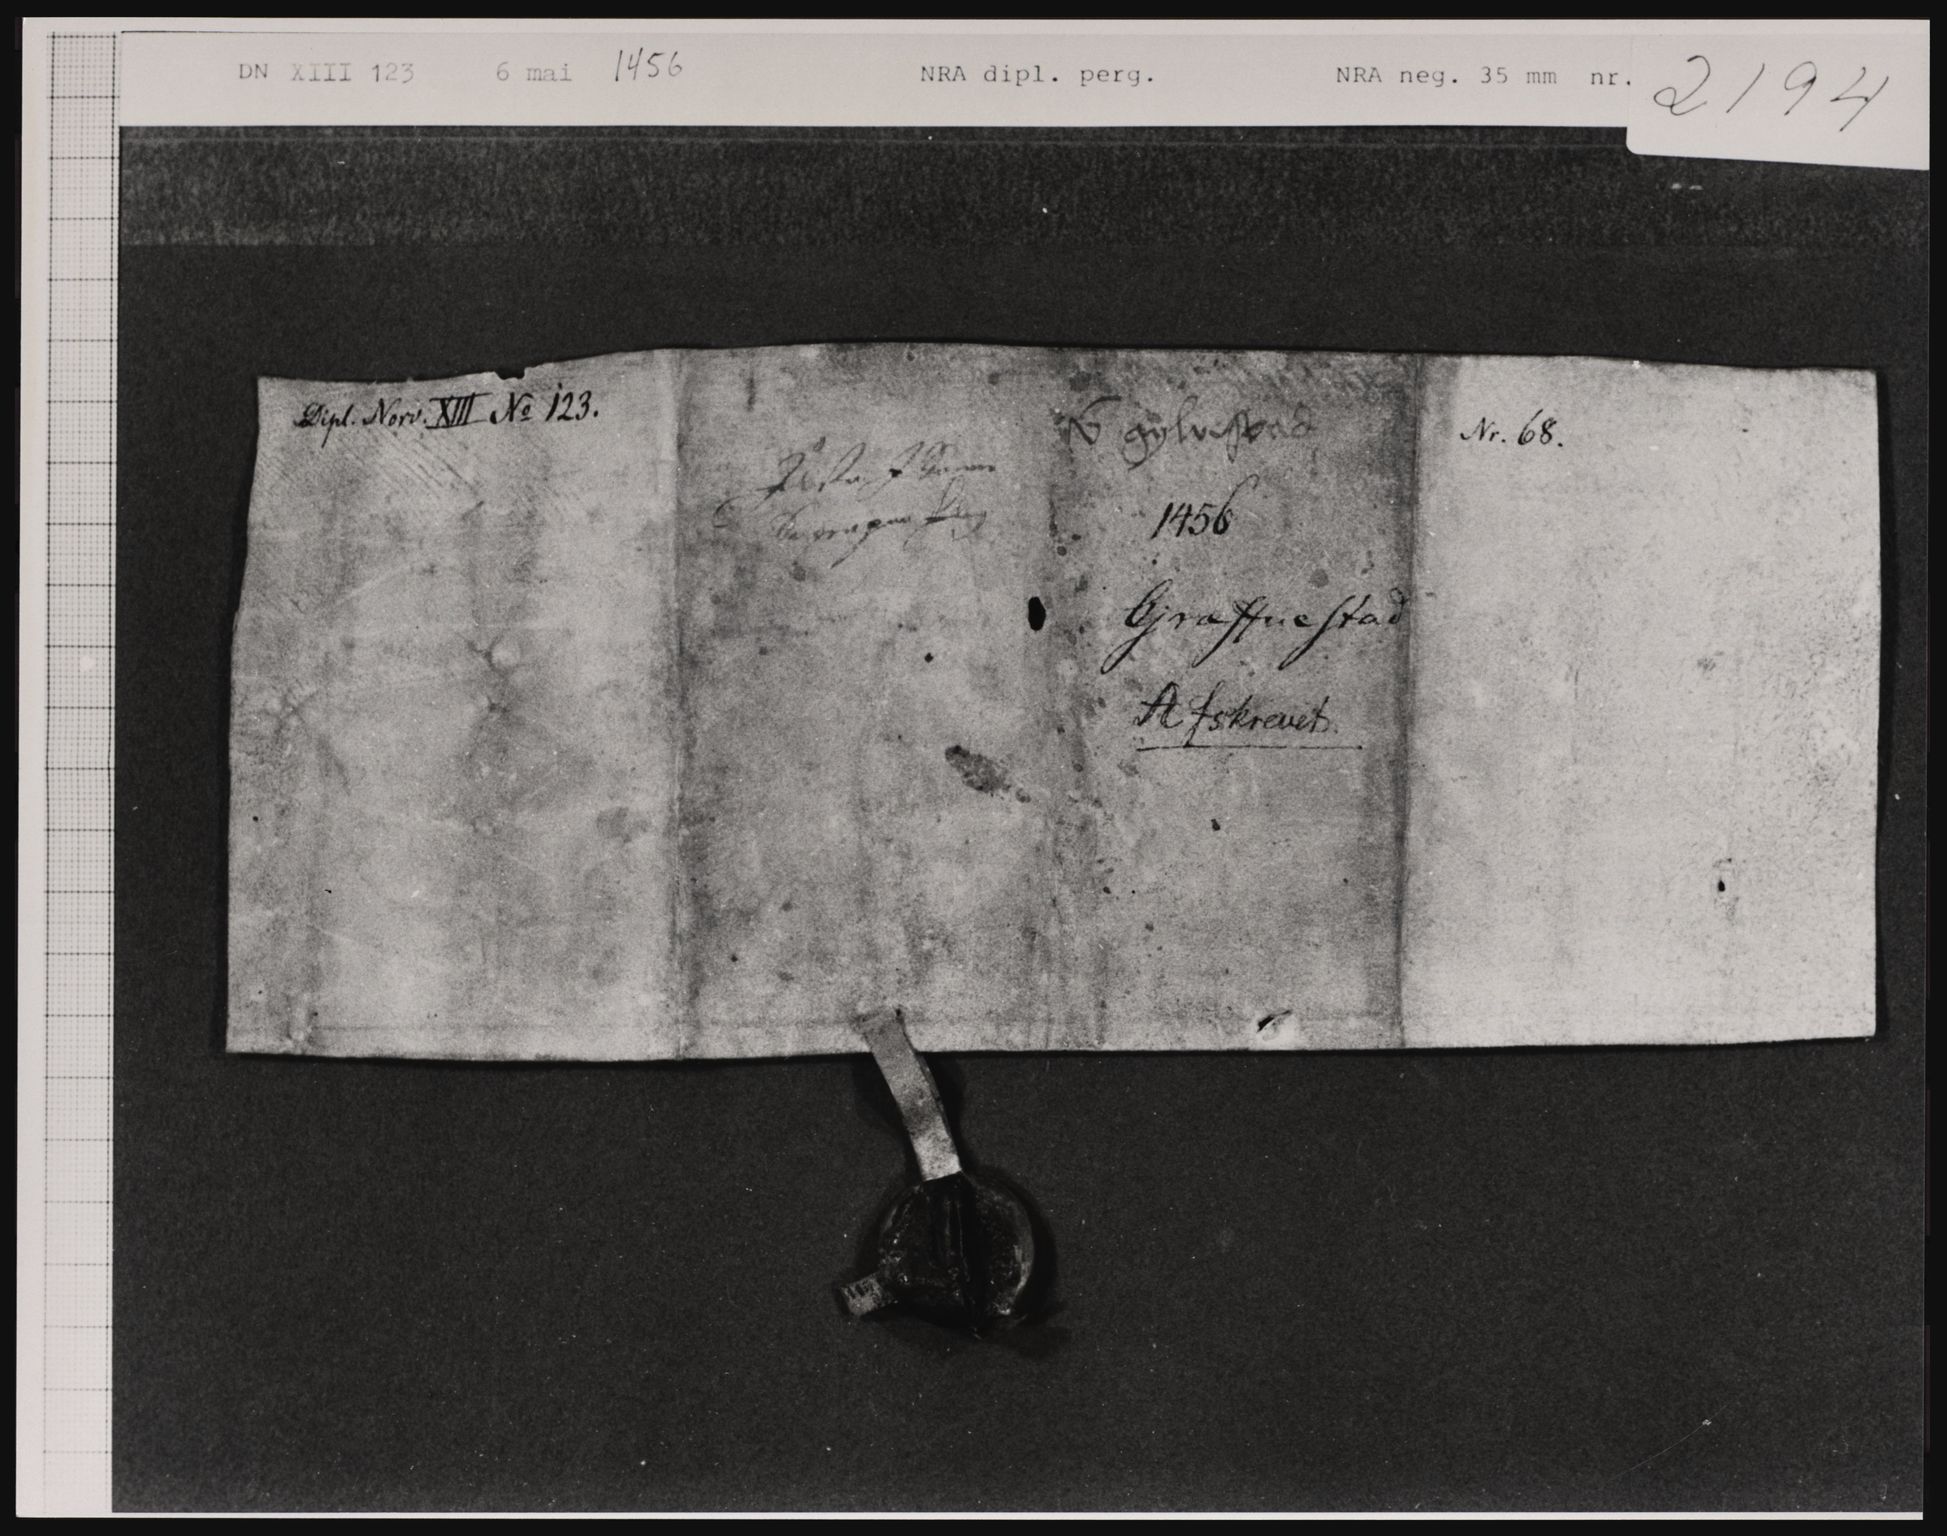 DN XIII 123 6 mai 1456 NRA dipl. perg. NRA neg. 35 mm nr. 2194
Dipl. Norv. XIII No 123.
Nr. 68.
1456
Graffuestad
Afskrevet.